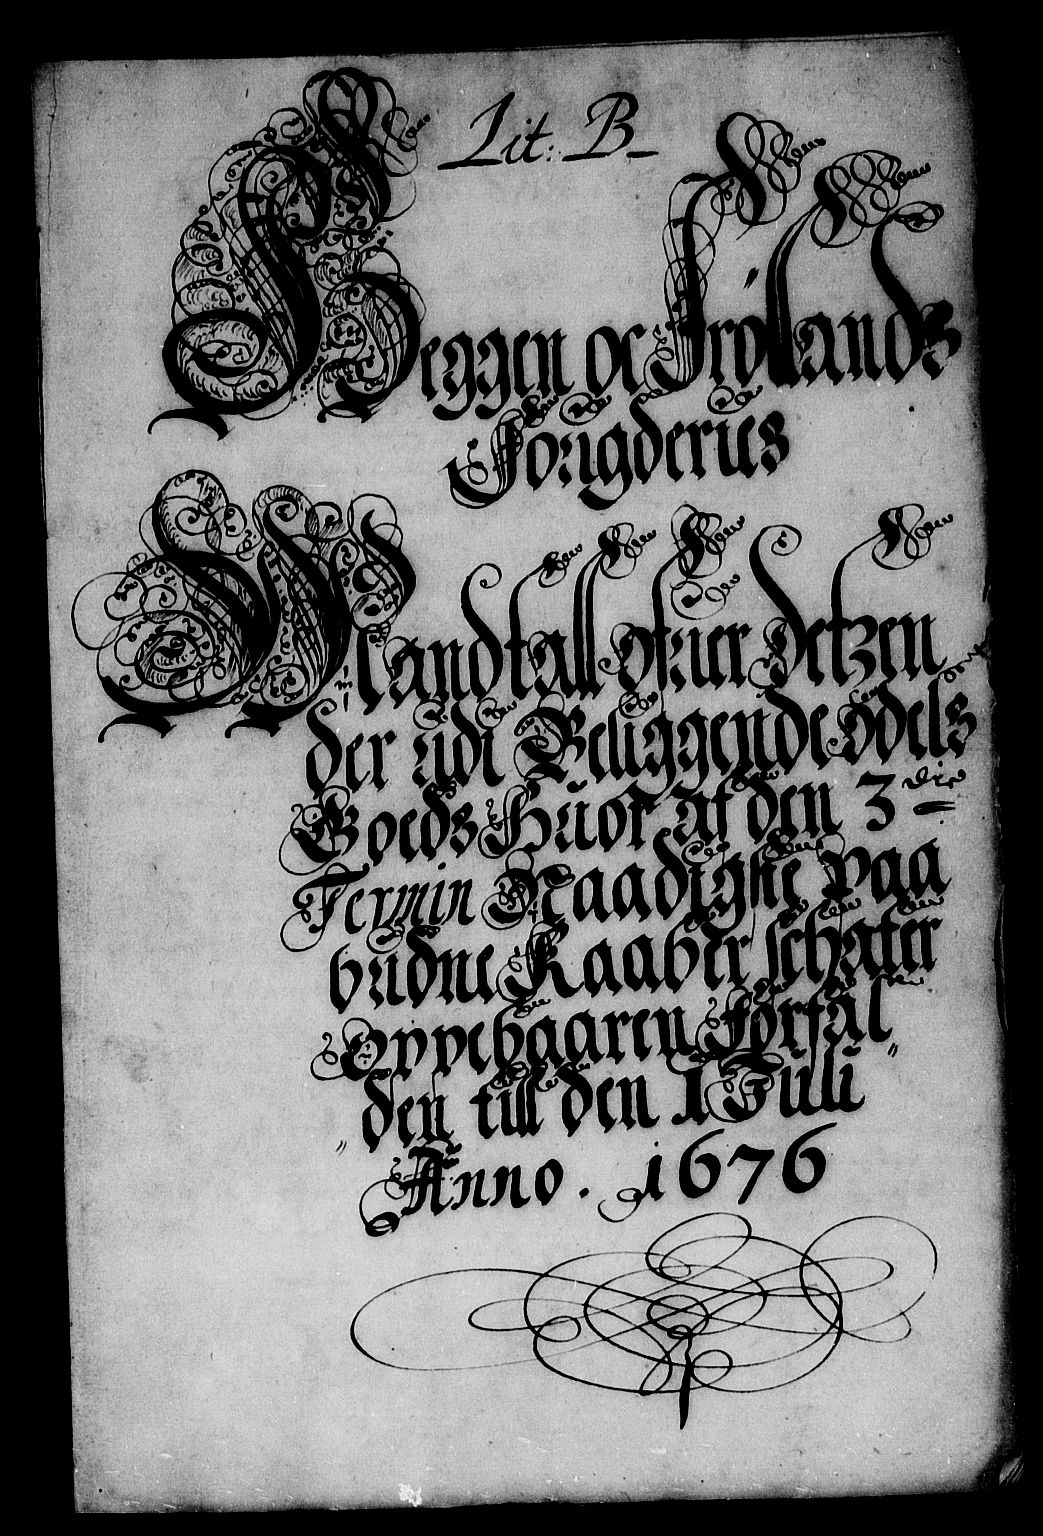 Lit: B
Heggen oc Frölands
Förigderies
Mandtall ofuer detzen
der udi Beliggende ödels
Goeds Huor af den 3die
Termin Naadigste paa
budne Kaaber schater
oppebaaren forfal„
„den till den 1 Juli
Anno. 1676